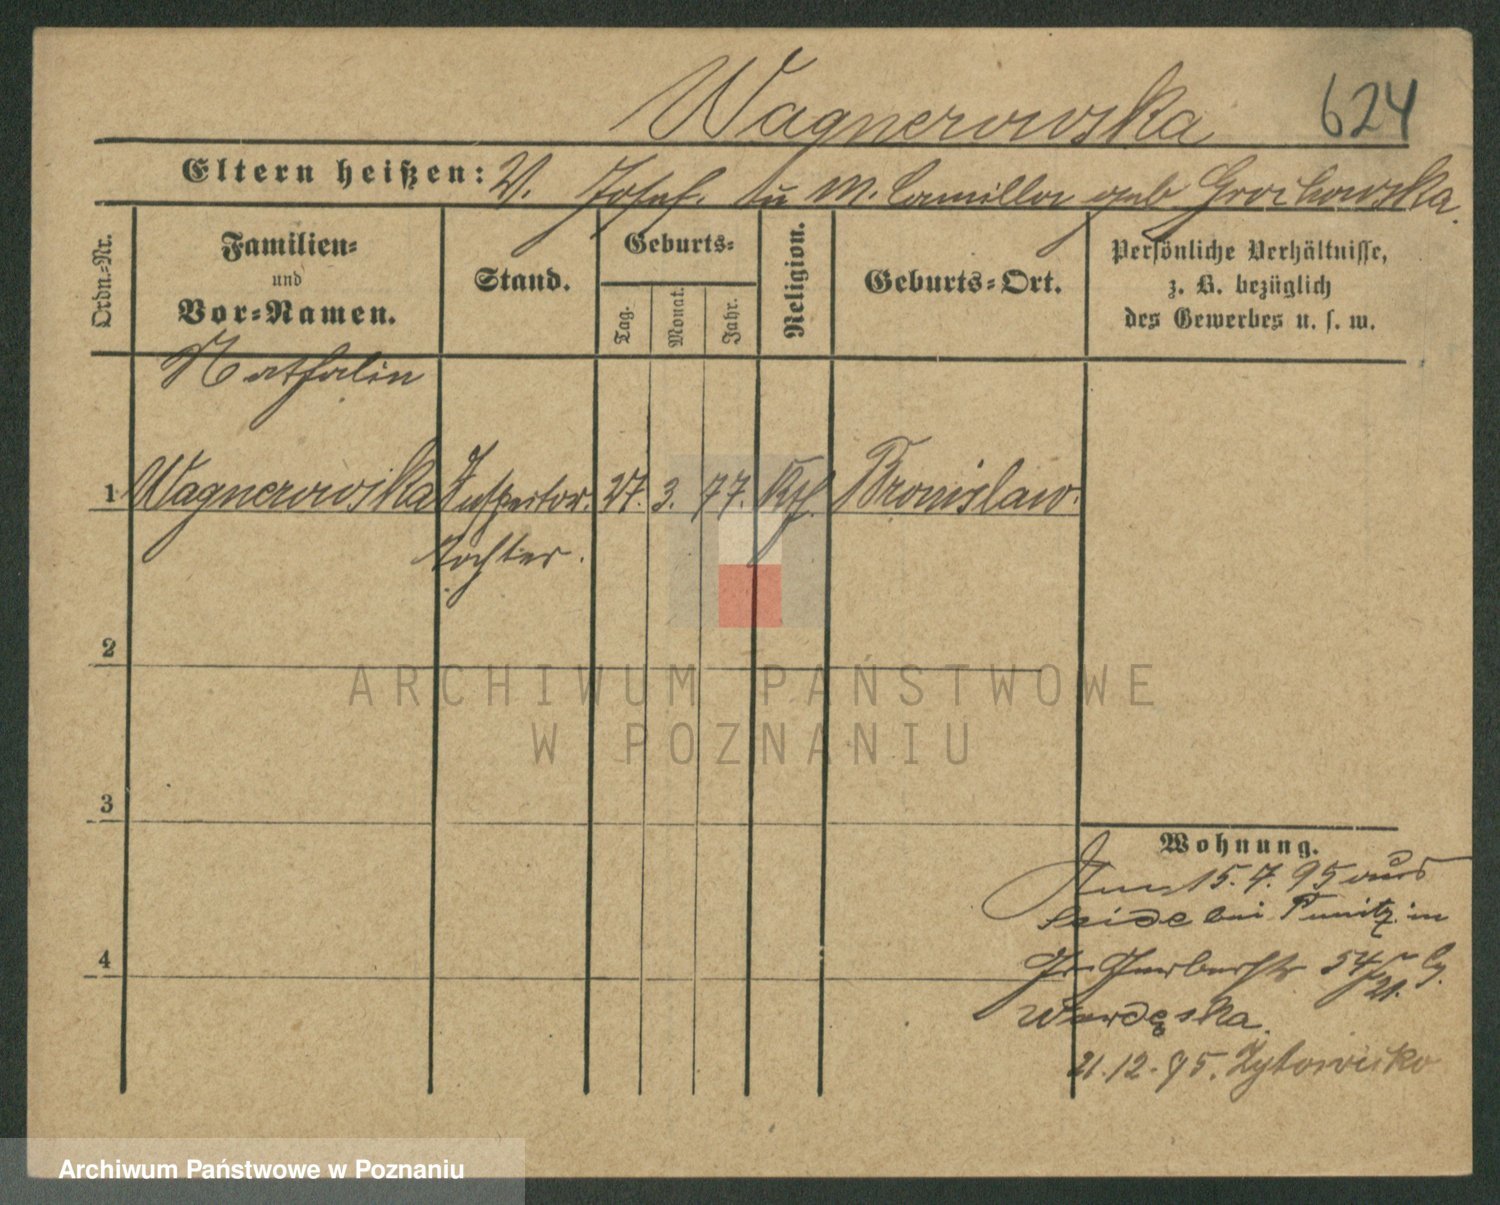 Wagnerowska 624
Eltern heißen: V. Josef. M. Camilla geb. Grochowska.
Ordn.-Nr.
Familien-
und
Vor-Namen.
Stand.
Geburts-
Tag.
Monat.
Jahr.
Religion.
Geburts-Ort.
Persönliche Verhältnisse,
z. B. bezüglich
des Gewerbes u. s. w.
Nathalin
1 Wagnerowska Inspektor. 27. 3. 77. Kth. Bronislaw.
tochter.
2
ARCHIWUM PAŃSTWOWE
W POZNANIU
3
Wohnung.
15. 7. 95 aus
bei Punitz in
4
54
21.
21.12.95. Zytowiecko
Archiwum Państwowe w Poznaniu